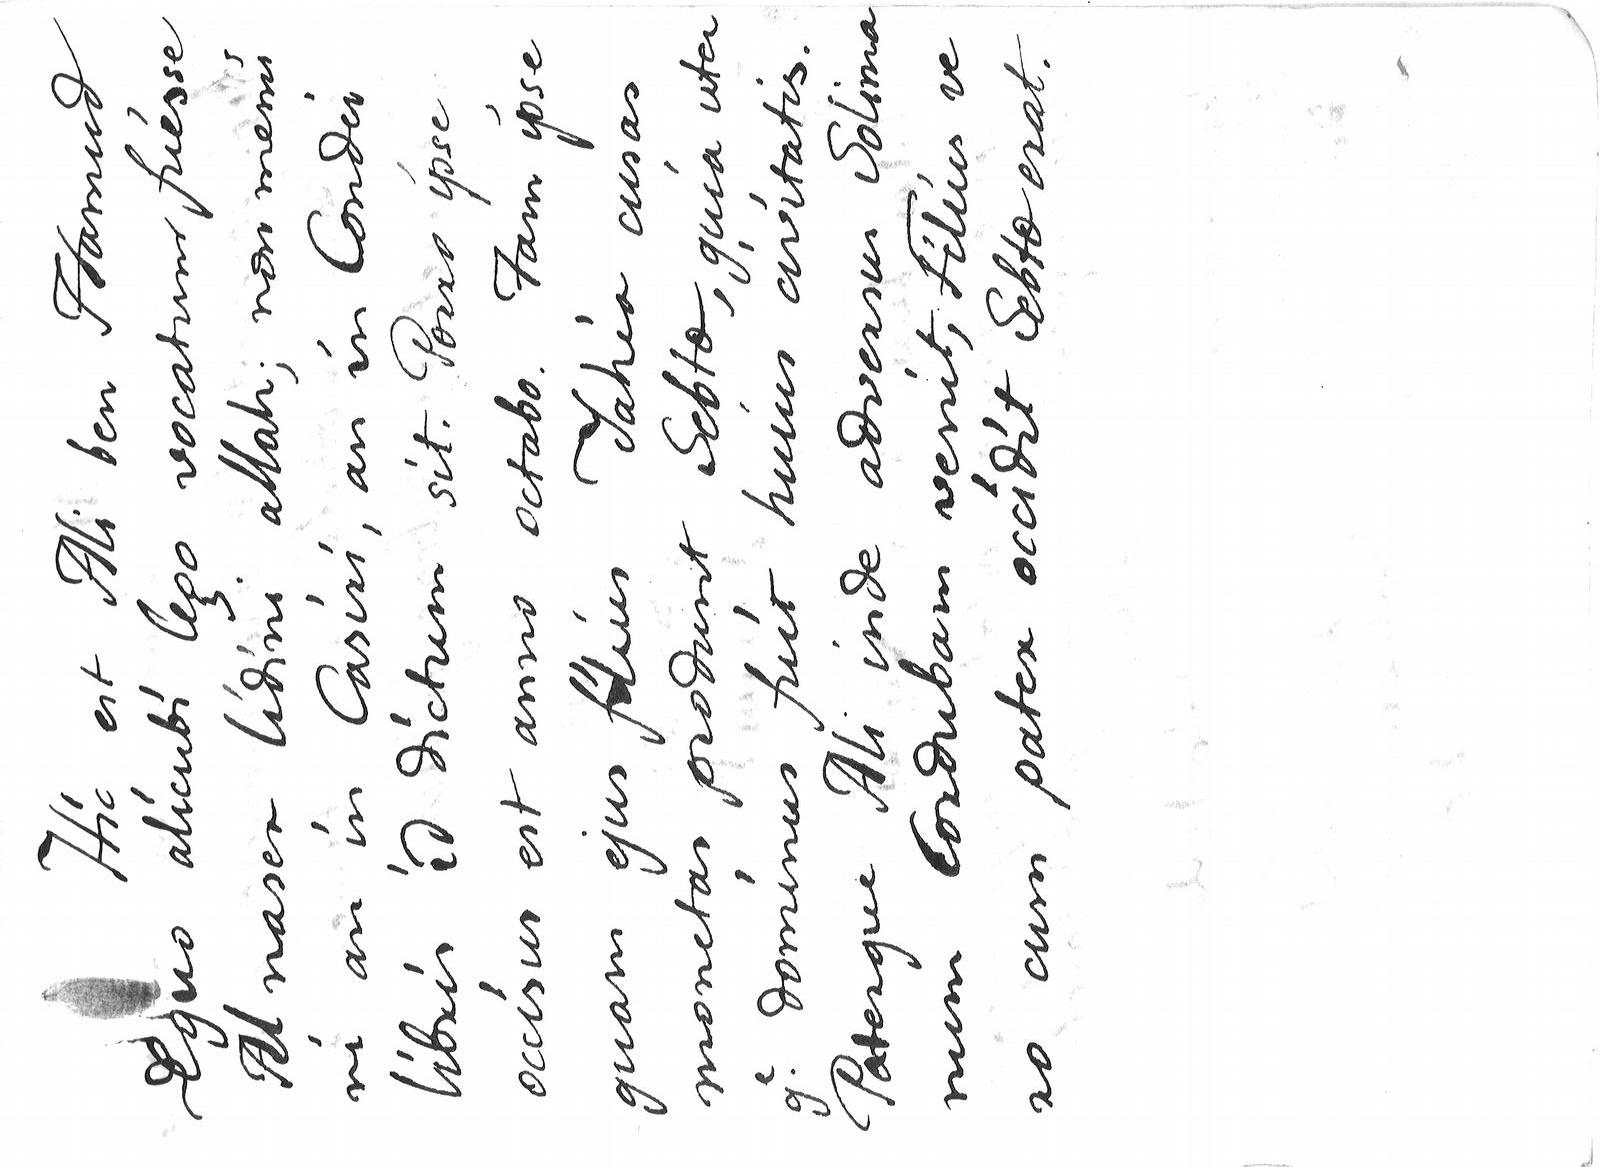 Hic est Ali ben Hamud
Equo alicubi lego vocatum fuisse
Al naser lidini allah; non memi
ni an in Casiri, an in Condei
libris id dictum sit. Porro ipse
occisus est anno octabo. Tam ipse
quam ejus filius Iahia cusas
monetas produnt Sebto, quia uter
q.e dominus fuit huius civitatis.
Paterque Ali inde adversus Solima
num Cordubam venit, Filius ve
ro cum pater occidit Sebto erat.